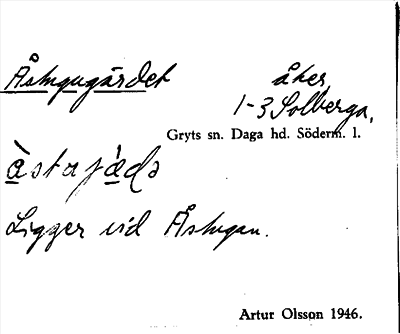 Åstugugärdet åker
1-3 Solberga,
Gryts sn. Daga hd. Söderm. l.
Ligger vid Åstugan.
Artur Olsson 1946.